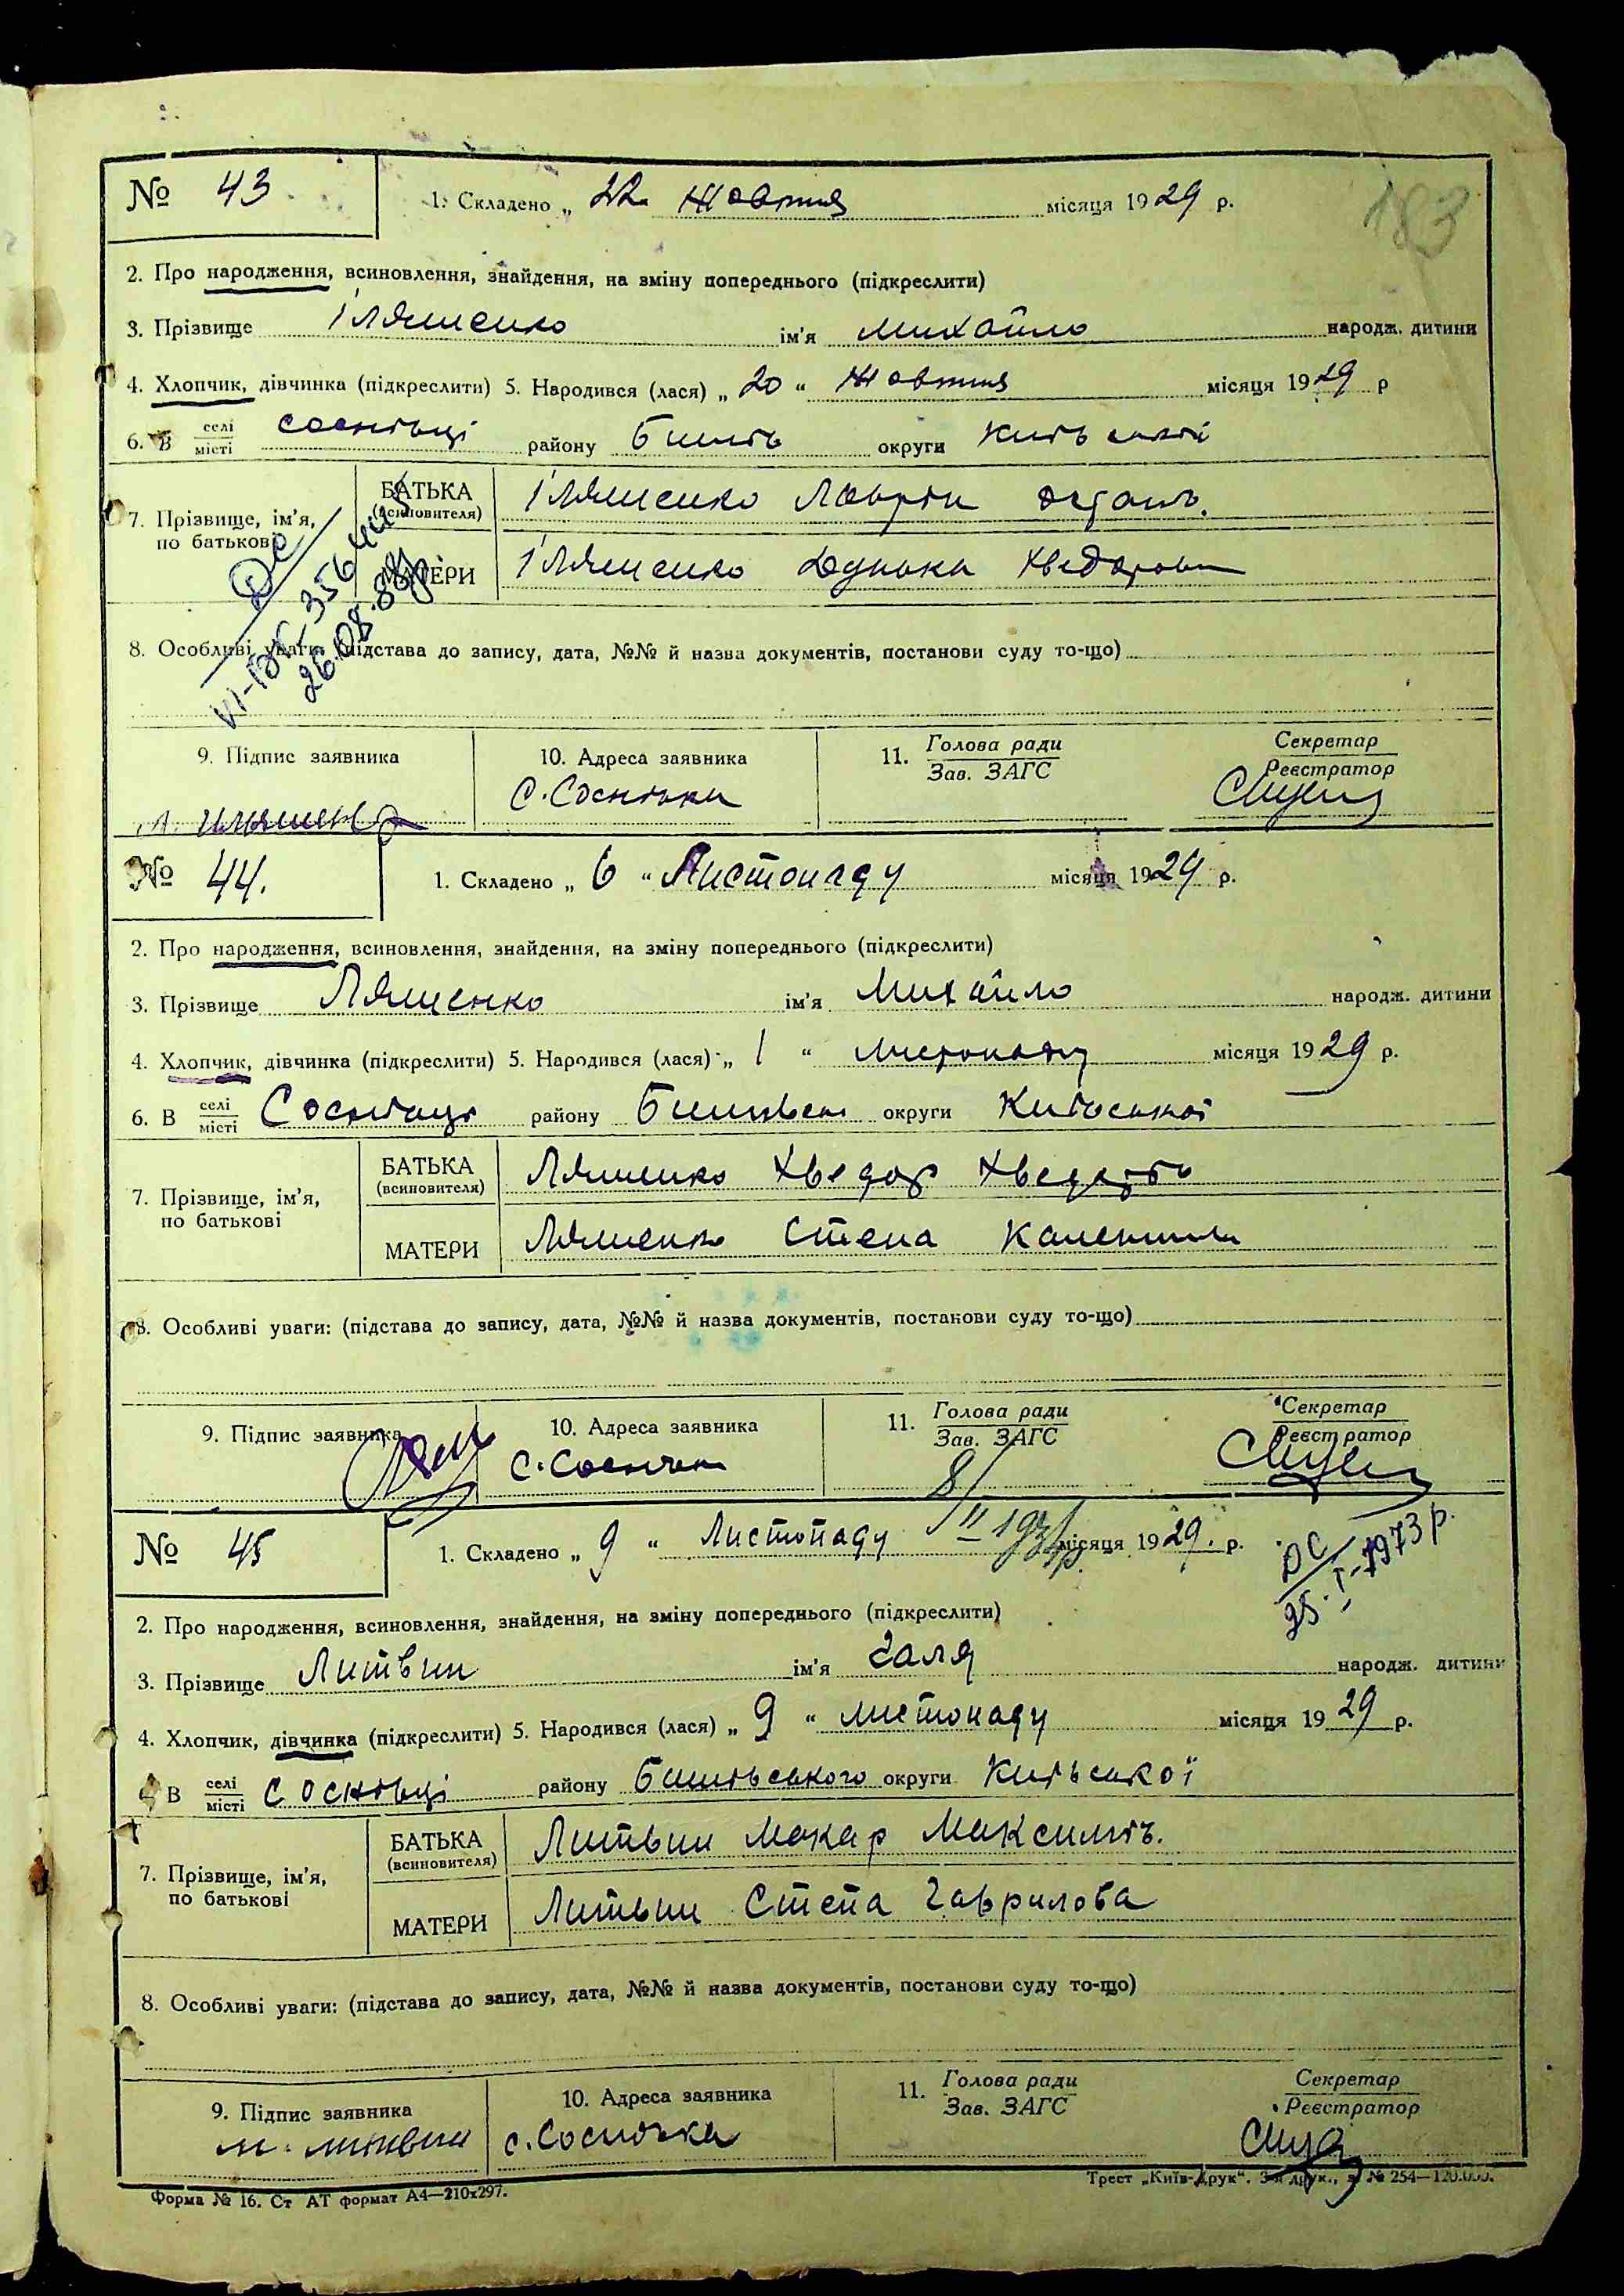 183
№ 43
1. Складено „ 22 Жовтня місяця 1929 р.
2. Про народження, всиновлення, знайдення, на зміну попереднього (підкреслити)
3. Прізвище Іляшенко ім'я Михайло народж. дитини
4. Хлопчик, дівчинка (підкреслити) 5. Народився (лася) „ 20 “ Жовтня місяця 1929 р
6. В селі місті Соснівці району Бишів округи Київської
7. Прізвище, ім'я, по батькові
БАТЬКА (всиновителя) Іляшенко Лаврін
МАТЕРИ Іляшенко Дунька Хведоровн
8. Особливі уваги: (підстава до запису, дата, №№ й назва документів, постанови суду то-що)
9. Підпис заявника
10. Адреса заявника
11. Голова ради Зав. ЗАГС
Секретар Реєстратор
С. Соснівки
№ 44.
1. Складено „ 6 “ Листопаду місяця 1929 р.
2. Про народження, всиновлення, знайдення, на зміну попереднього (підкреслити)
3. Прізвище Ляшенко ім'я Михайло народж. дитини
4. Хлопчик, дівчинка (підкреслити) 5. Народився (лася) „ 1 “ листопаду місяця 1929 р.
6. В селі місті Соснівці району Бишівськ округи Київської
7. Прізвище, ім'я, по батькові
БАТЬКА (всиновителя) Ляшенко Хведор Хведорів
МАТЕРИ Ляшенко Степа
8. Особливі уваги: (підстава до запису, дата, №№ й назва документів, постанови суду то-що)
9. Підпис заявника
10. Адреса заявника
11. Голова ради Зав. ЗАГС
Секретар Реєстратор
с. Соснівка
№ 45
1. Складено „ 9 “ Листопаду місяця 1929. р.
ДС
25-I-1973 р.
2. Про народження, всиновлення, знайдення, на зміну попереднього (підкреслити)
3. Прізвище Литвин ім'я Галя народж. дитини
4. Хлопчик, дівчинка (підкреслити) 5. Народився (лася) „ 9 “ листопаду місяця 1929 р.
6. В селі місті Соснівці району Бишівського округи Київської
7. Прізвище, ім'я, по батькові
БАТЬКА (всиновителя) Литвин Макар Максимів.
МАТЕРИ Литвин Степа Гаврилова
8. Особливі уваги: (підстава до запису, дата, №№ й назва документів, постанови суду то-що)
9. Підпис заявника
10. Адреса заявника
11. Голова ради Зав. ЗАГС
Секретар Реєстратор
м. литвин
с. Соснівка
Форма № 16. Ст АТ формат А4—210х297.
Трест „Київ-Друк“. 3-я друк., з. № 254—120.000.